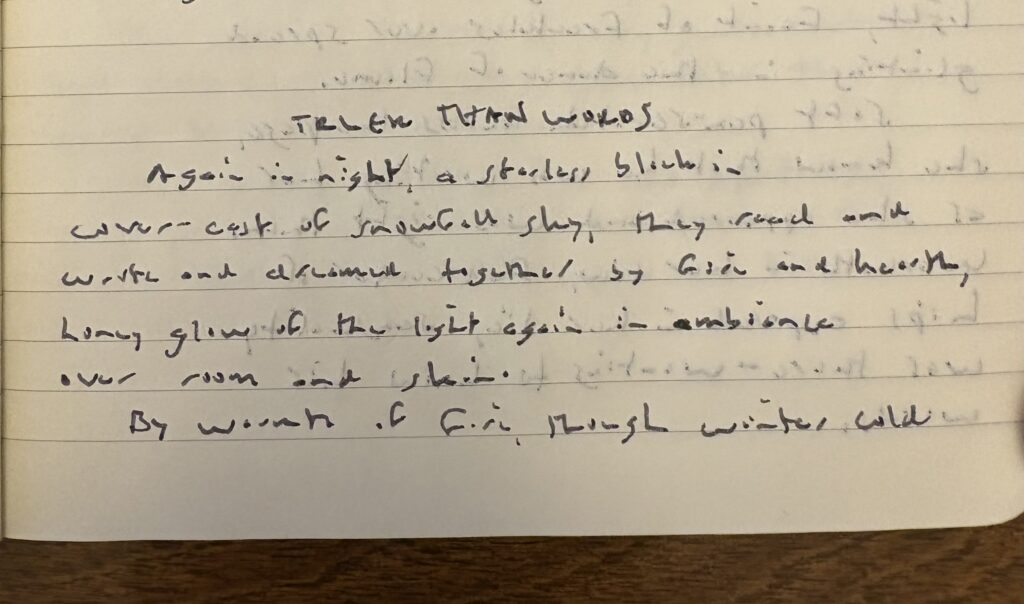 TRUER THAN WORDS
Again in night, a starless black in
cover-cast of snowfall sky, they read and
write and dreamed together by fire and hearth,
honey glow of the light again in ambiance
over room and skin.
By warmth of fire, though winter cold